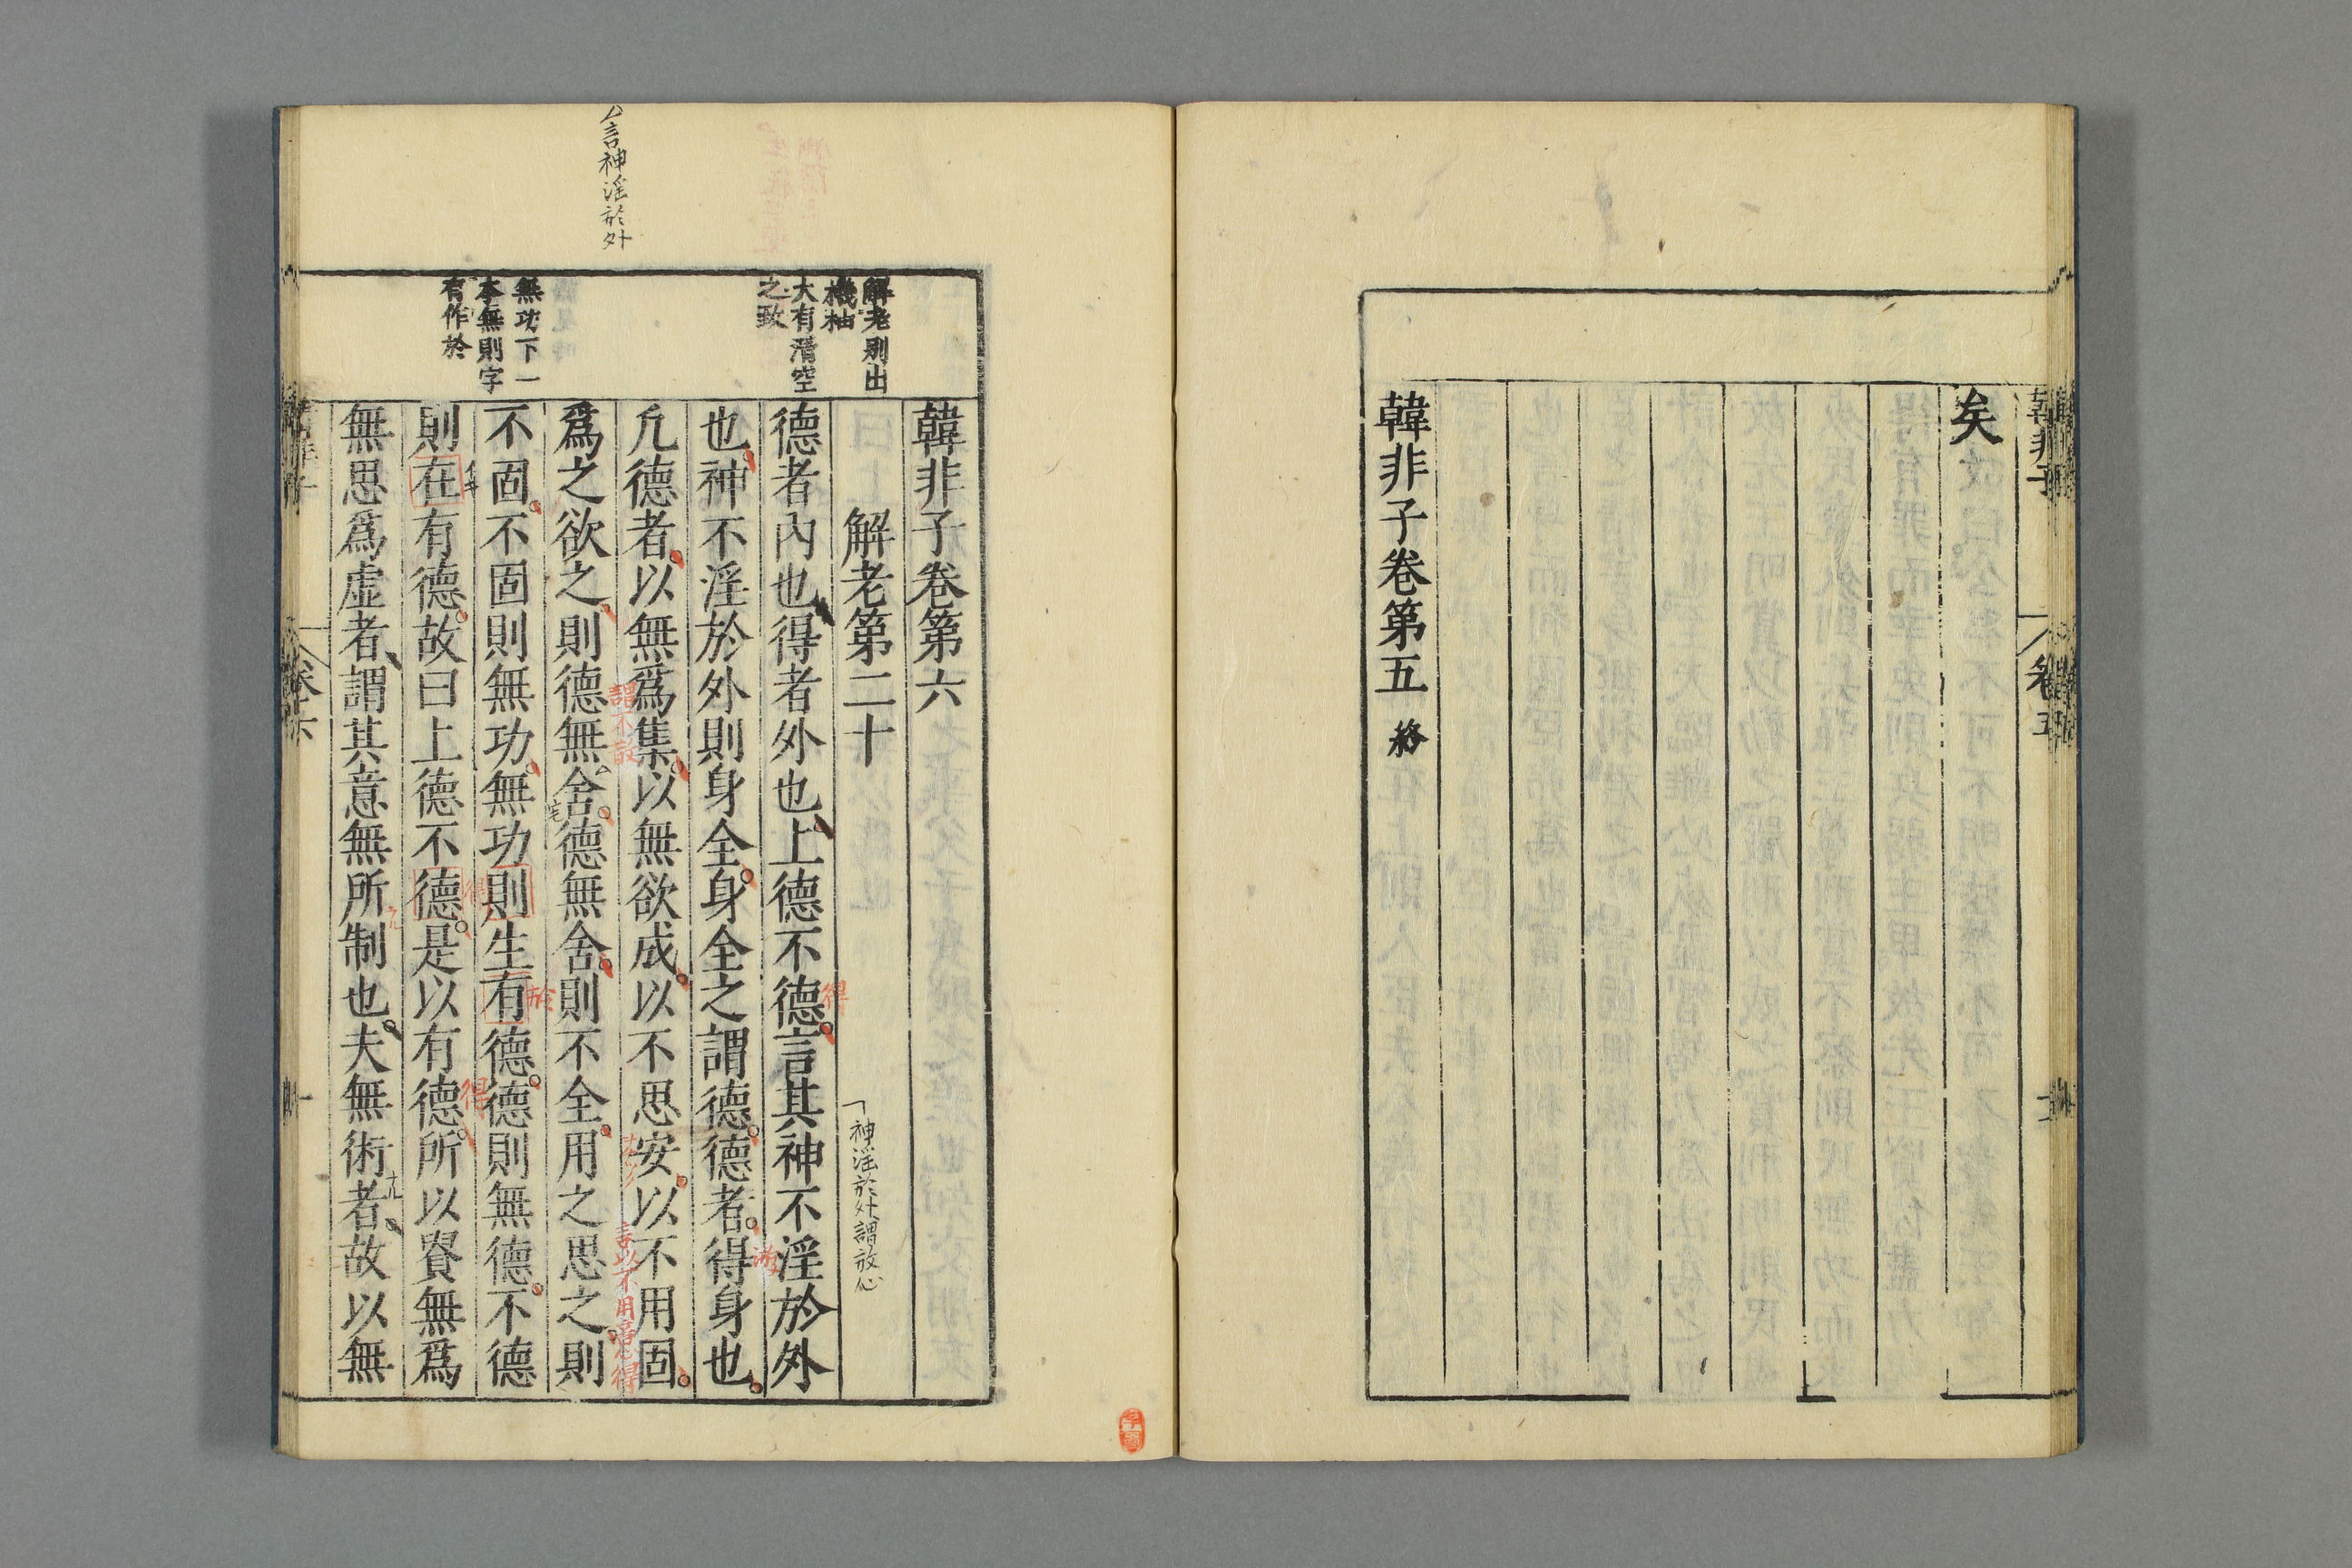 矣
韓非子卷第五 終
韓非子
卷五
韓非子卷第六
解老第二十
德者內也得者外也上德不德言其神不淫於外
也神不淫於外則身全身全之謂德德者得身也
凢德者以無爲集以無欲成以不思安以不用固
爲之欲之則德無舍德無舍則不全用之思之則
不固不固則無功無功則生有德德則無德不德
則在有德故曰上德不德是以有德所以貴無爲
無思爲虛者謂其意無所制也夫無術者故以無
解老別出
機柚
大有濳空
之致
無功下一
本無則字
有作於
言神淫於外
神淫於外謂放心
得
謂不散
於
得
得
言以不用
得
卷六